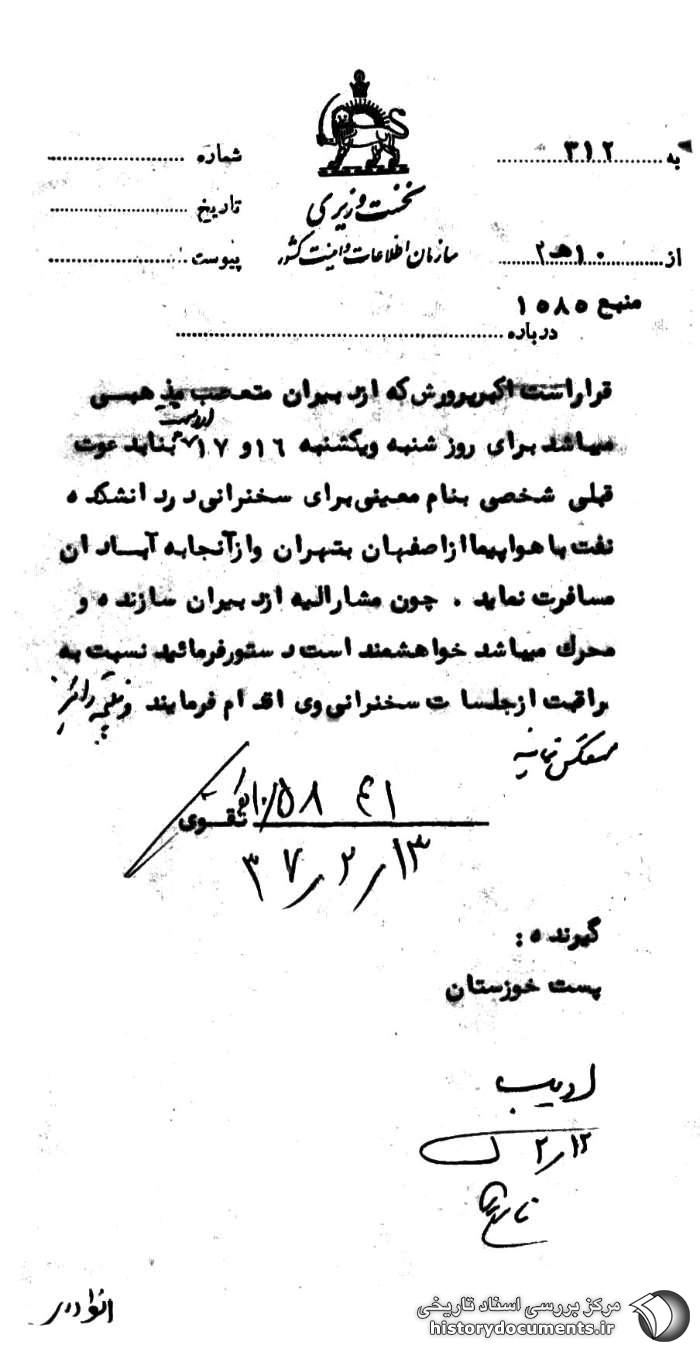 به ..........۳۱۲..........
شماره ....................
نخست وزیری
تاریخ ....................
از ..........۱۰هـ۲..........
سازمان اطلاعات و امنیت کشور
پیوست ....................
منبع ۱۵۸۵
درباره ........................................
قرار است اکبر پرورش که از دبیران متعصب مذهبی
میباشد برای روز شنبه و یکشنبه ۱۶ و ۱۷ بنا بدعوت
قبلی شخصی بنام معینی برای سخنرانی در دانشکده
نفت با هواپیما از اصفهان بتهران و از آنجا به آبادان
مسافرت نماید . چون مشارالیه از دبیران سازنده و
محرک میباشد خواهشمند است دستور فرمائید نسبت به
مراقبت از جلسات سخنرانی وی اقدام فرمایند و نتیجه را نیز
منعکس نمایید
تقوی
۳۷/۲/۱۳
گیرنده :
پست خوزستان
ادیب
۲/۱۲
مرکز بررسی اسناد تاریخی
historydocuments.ir